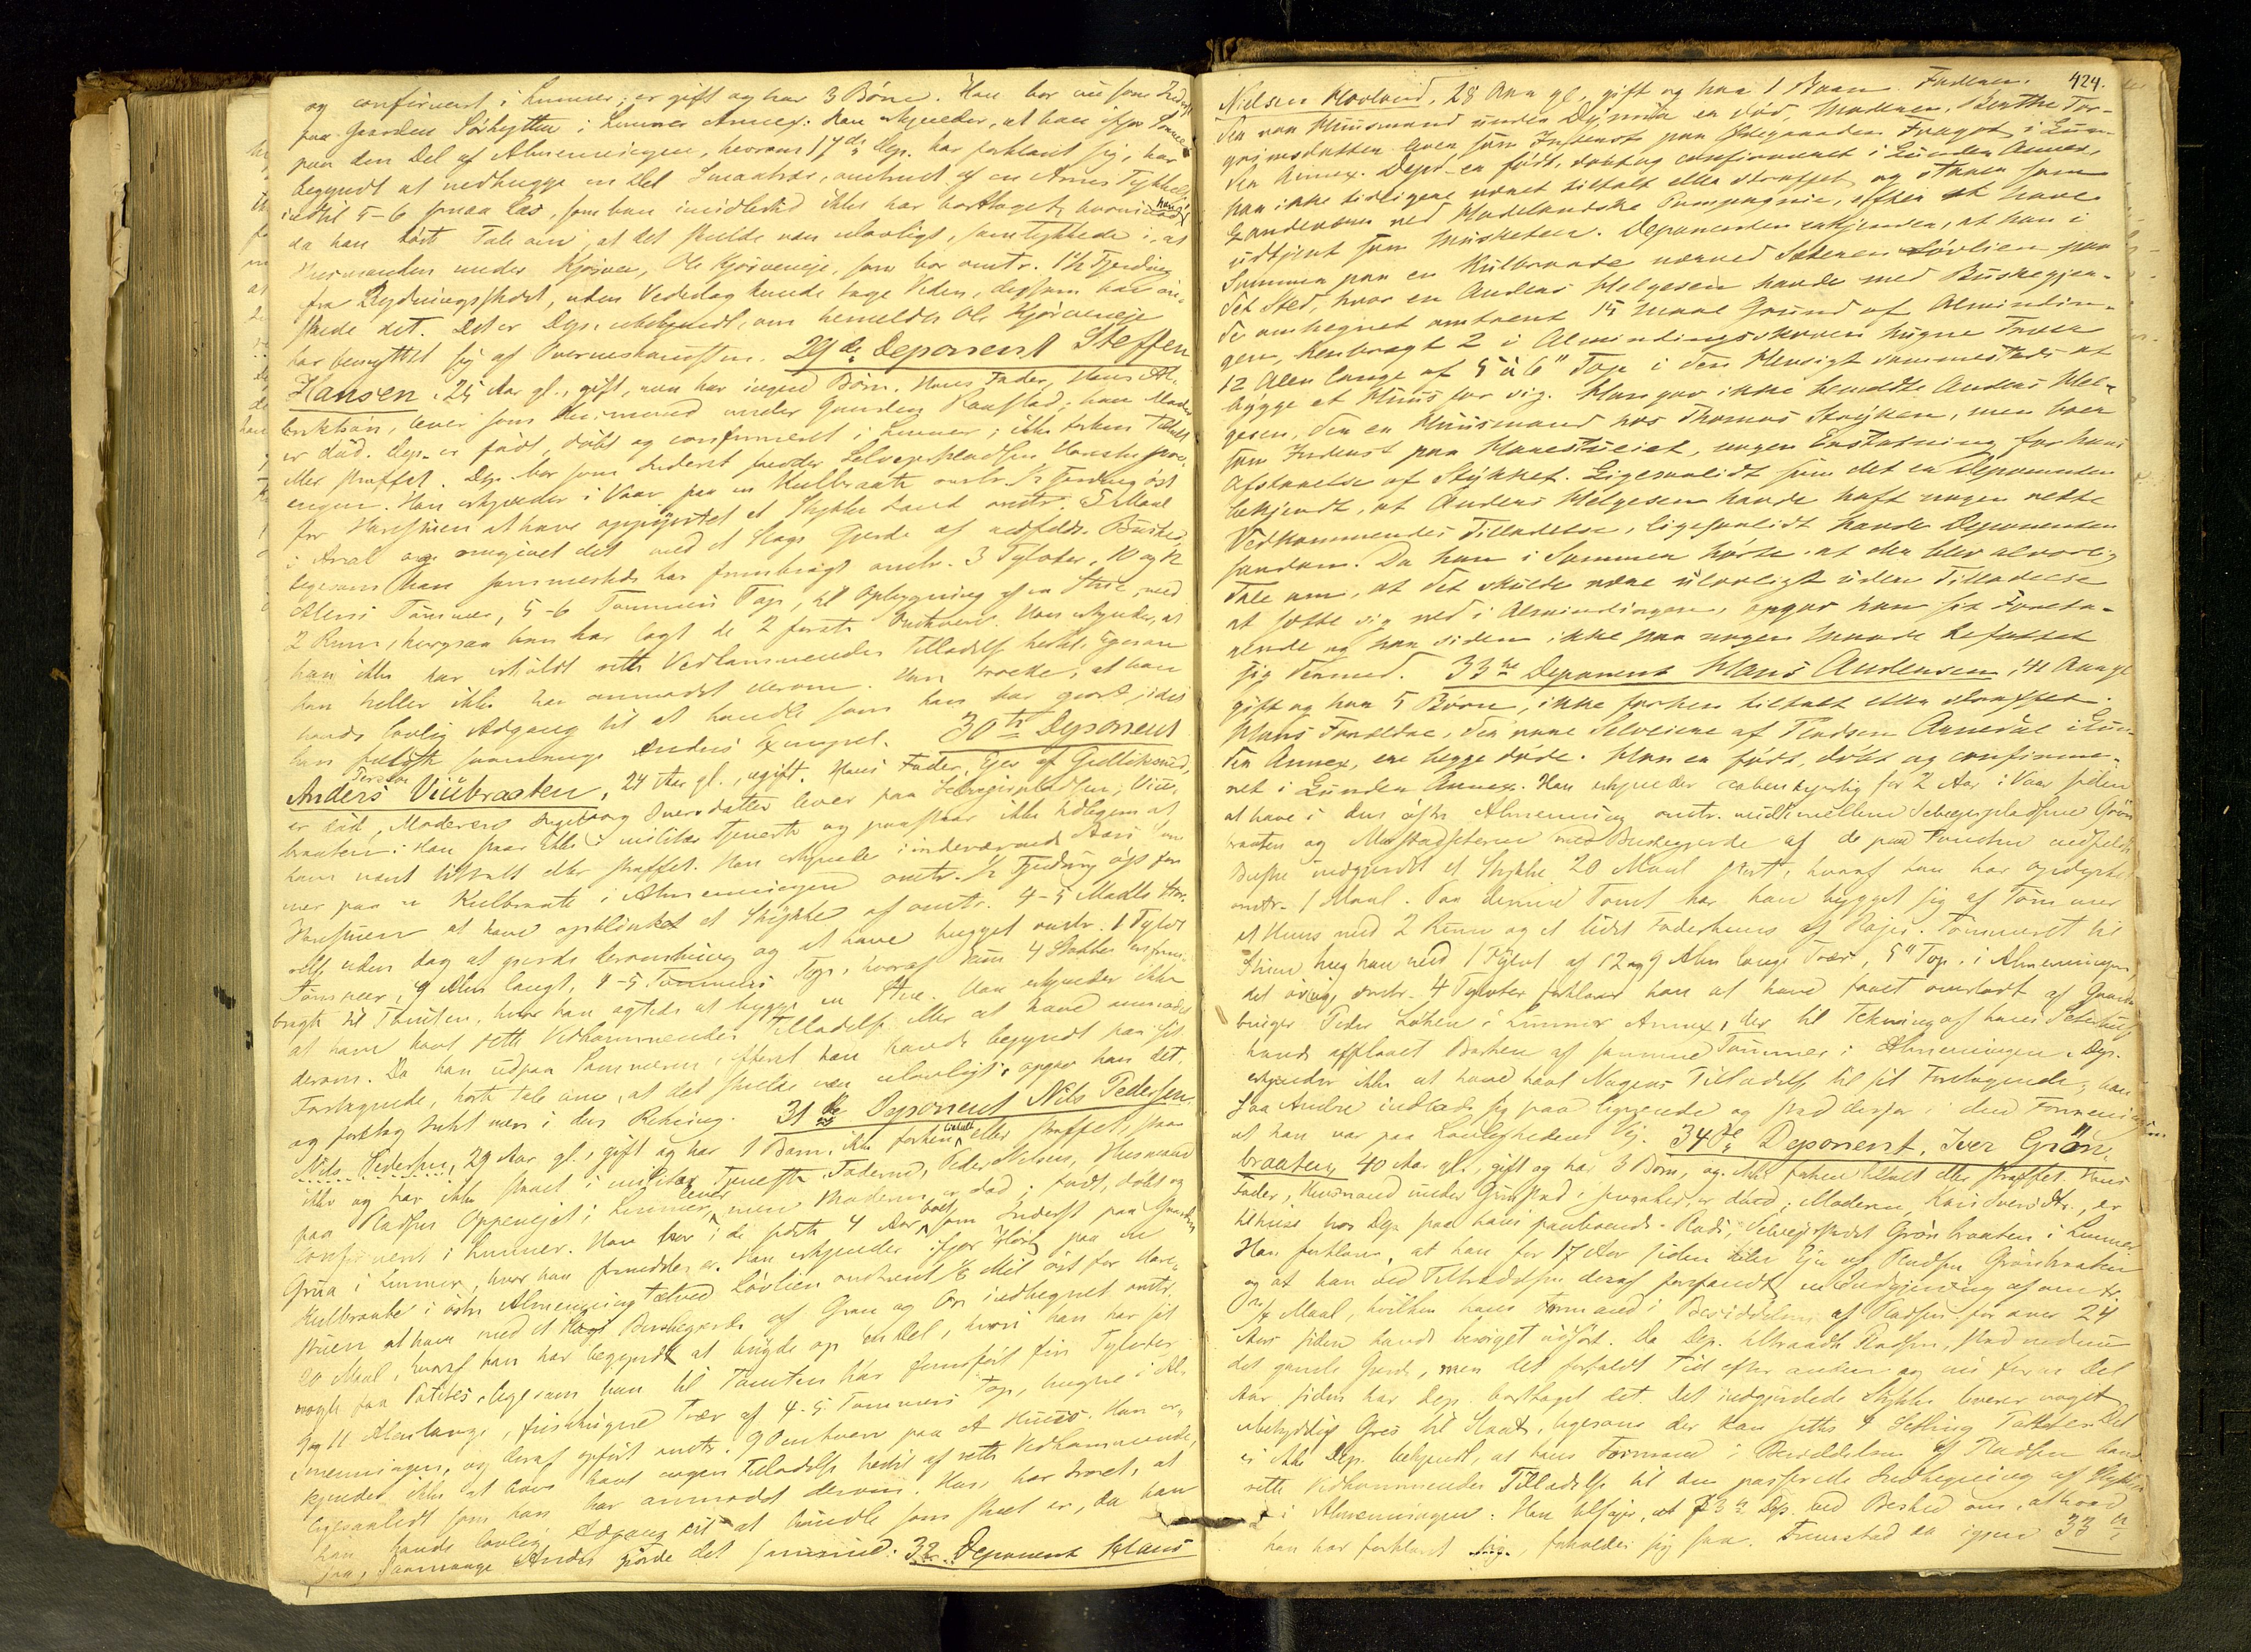 og confirmert i Lunner; er gift og har 3 Børn. Han bor nu som Inderst
paa Gaarden Sørhytten i Lunner Annex. Han erkjender, at han ifjor Sommer
paa den Del af Almenningen, hvorom 17de Dep. har forklaret sig, har
begyndt at nedhugge en Del Smaatræ, omtrent af en Arms Tykkelse
indtil 5-6 smaa Læs, som han imidlertid ikke har borttaget, hvorimod han,
da han hørte Tale om, at det skulde være ulovligt, samtykkede i, at
Husmanden under Kjørven, Ole Kjørveneje, som bor omtr. 1½ Fjerding
fra Rydningsstedet, uden Vederlag kunde tage Veden, dersom han øn-
skede det. Det er Dep. ubekjendt, om bemeldte Ole Kjørveneje
har benyttet sig af Overenskomsten. 29de Deponent Steffen
Hansen, 25 Aar gl., gift, men har ingen Børn. Hans Fader, Hans Al-
briktsøn, lever som Husmand under Gaarden Raastad; hans Moder
er død. Dep. er født, døbt og confirmeret i Lunner; ikke forhen tiltalt
eller straffet. Dep. bor som Inderst
engen. Han erkjender i Vaar paa en Kulbraate omtr. ½ Fjerding øst
for Harestuen at have oppigøret et Stykke Land omtr. 5 Maal
i Areal og omgivet det med et Slags Gjerde af nedfældte Buske,
ligesom han sammesteds har frembragt omtr. 3 Tylvter, 10 og 12
Alens Tømmer, 5-6 Tommers Top, til Opbygning af en Stue med
2 Rum, hvorpaa han har lagt de 2 første Omhvarv. Han erkjender, at
han ikke har erholdt rette Vedkommendes Tilladelse hertil, ligesom
han heller ikke har anmodet derom. Han troede, at han
havde lovlig Adgang til at handle som han har gjort, idet
han fulgte saamange Andres Exempel. 30te Deponent
Anders Persson Viubraaten, 24 Aar gl., ugift. Hans Fader, Ejer af
er død, Moderen Ingeborg Iversdatter lever paa Selvejerpladsen Viu-
braaten: Han staar ikke i militær Tjeneste og paastaar ikke tidligere at
have været tiltalt eller straffet. Han erkjender i indeværende Aars Som-
mer paa en Kulbraate i Almenningen omtr. ½ Fjerding øst for
Harestuen at have opblinket et Stykke af omtr. 4-5 Maals Stør-
relse uden dog at gjerde deromkring og at have hugget omtr. 1 Tylvt
Tømmer, 9 Alen langt, 4-5 Tommers Top, hvoraf kun 4 Stokker er frem-
bragt til Tomten, hvor han agtede at bygge en Stue. Han erkjender ikke
at have havt rette Vedkommendes Tilladelse eller at have anmodet
derom. Da han udpaa Sommeren, efterat han havde begyndt paa sit
Foretagende, hørte tale om, at det skulde være ulovligt, opgav han det
og foretog Intet mere i den Retning. 31te Deponent Nils Pedersen
Nils Pedersen, 29 Aar gl., gift og har 1 Barn, ikke forhen tiltalt eller straffet, staar
ikke og har ikke staaet i militær Tjeneste. Faderen, Peder Nilsen, Husmand
paa Pladsen Oppeneiet i Lunner lever, men Moderen er død; født, døbt og
confirmeret i Lunner. Han har i de sidste 4 Aar boet som Inderst paa Gaarden
Grua i Lunner, hvor han fremdeles er. Han erkjender ifjor Høst paa en
Kulbraate i østre Almenning tætved Løvlien omtrent ⅙ Mil øst for Hare-
stuen at have med et Slags Buskegjerde af Gran og Or indhegnet omtr.
20 Maal, hvoraf han har begyndt at bryde op en Del, hvori han har sat
nogle faa Potetes, ligesom han til Tomten har fremført fire Tylvter
9 og 11 Alen lange, friskhugne Trær af 4-5 Tommers Top, hugne i Al-
menningen, og deraf opført omtr. 9 Omhvarv paa et Huus. Han er-
kjender ikke at have havt nogen Tilladelse hertil af rette Vedkommende,
ligesaalidt som han har anmodet derom. Han har troet, at
han havde lovlig Adgang til at handle som skeet er, da han
saa, saamange Andre gjøre det samme. 32te Deponent Hans
424.
Nielsen Hovland, 28 Aar gl., gift og har 1 Barn. Faderen,
der var Huusmand under Dynna er død, Moderen, Berthe Tor-
grimsdatter lever som Inderst paa Ødegaarden Fraget i Lun-
der Annex. Depd. er født, døbt og confirmeret i Lunder Annex,
har ikke tidligere været tiltalt eller straffet og staaer som
Landeværn ved Hadelandske Compagnie, efter at have
udtjent som Musketeer. Deponenten erkjender, at han i
Sommer paa en Kulbraate nærved Sæteren Løvlien paa
det Sted, hvor en Anders Helgesen havde med Buskegjer-
de omhegnet omtrent 15 Maal Grund af Almindin-
gen, henbragt 2 i Almindingsskoven hugne Træer
12 Alen lange af 5 à 6" Top i den Hensigt sammesteds at
bygge et Huus for sig. Han gav ikke bemeldte Anders Hel-
gesen, der er Huusmand hos Thomas Stryken, men boer
som Inderst paa Harestueiet, nogen Erstatning for hans
Afstaaelse af Stykket. Ligesaalidt som det er Deponenten
bekjendt, at Anders Helgesen havde haft nogen rette
Vedkommendes Tilladelse, ligesaalidt havde Deponenten
saadan. Da han i Sommer hørte, at der blev alvorlig
Tale om, at det skulde være ulovligt uden Tilladelse
at sætte sig ned i Almindingen, opgav han sit Foreta-
gende og har siden ikke paa nogen Maade befattet
sig dermed. 33te Deponent Hans Andersen, 41 Aar gl
gift og har 5 Børn, ikke forhen tiltalt eller straffet.
Hans Forældre, der vare Selveiere af Pladsen Annedal i Lun-
der Annex, ere begge døde. Han er født, døbt og confirme-
ret i Lunder Annex. Han erkjender for 2 Aar i Vaar siden
at have i den østre Almenning omtr. midtimellem Selvejerpladsene Grøn-
braaten og med Buskegjerde af de paa Tomten nedfældte
Buske indgjerdet et Stykke 20 Maal stort, hvoraf han har opdyrket
omtr. 1 Maal. Paa denne Tomt har han bygget sig af Tømmer
et Huus med 2 Rum og et lidet Foderhuus af Rajer. Tømmeret til
Stuen hug han med 1 Tylvt af 12 og 9 Alen lange Træer, 5" Top, i Almenningen,
det øvrige, omtr. 4 Tylvter forklarer han at have faaet overladt af Gaard-
bruger Peder Løken i Lunner Annex, der til Tekning af hans Sæterhuus
havde afflaaet Barken af samme Tømmer i Almenningen. Dep.
erkjender ikke at have havt Nogens Tilladelse til sit Foretagende, han
saa Andre indlade sig paa lignende og stod derfor i den Formening
at han var paa Lovlighedens Vej. 34de Deponent, Iver Grøn-
braaten, 40 Aar gl., gift og har 3 Børn, og ikke forhen tiltalt eller straffet. Hans
Fader, Husmand under Grinstad i er død; Moderen, Kari Iversdtr., er
tilhuse hos Dep. paa hans paaboende Plads, Selvejerstedet Grønbraaten i Lunner.
Han forklarer, at han for 17 Aar siden blev Ejer af Pladsen Grønbraaten
og at han ved Tiltrædelsen deraf forefandt en Indgjerding af omtr.
¼ Maal, hvilken hans Formand i Besiddelsen af Pladsen for over 24
Aar siden havde besørget udført. Da Dep. tiltraadte Pladsen, stod endnu
det gamle Gjerde, men det forfaldt Tid efter anden og nu for en Del
Aar siden har Dep. borttaget det. Det indgjerdede Stykke leverer noget
ubetydeligt Græs til Slaat, ligesom der kan sættes 1 Setting Poteter. Det
er ikke Dep. bekjendt, at hans Formand i Besiddelsen af Pladsen havde
rette Vedkommendes Tilladelse til den passerede Indhegning af Stykket
i Almenningen. Han tilføjer, at 33te Dep. ved Besked om, at hvad
han har forklaret sig, forholder sig saa. Fremsted saa igjen 33te